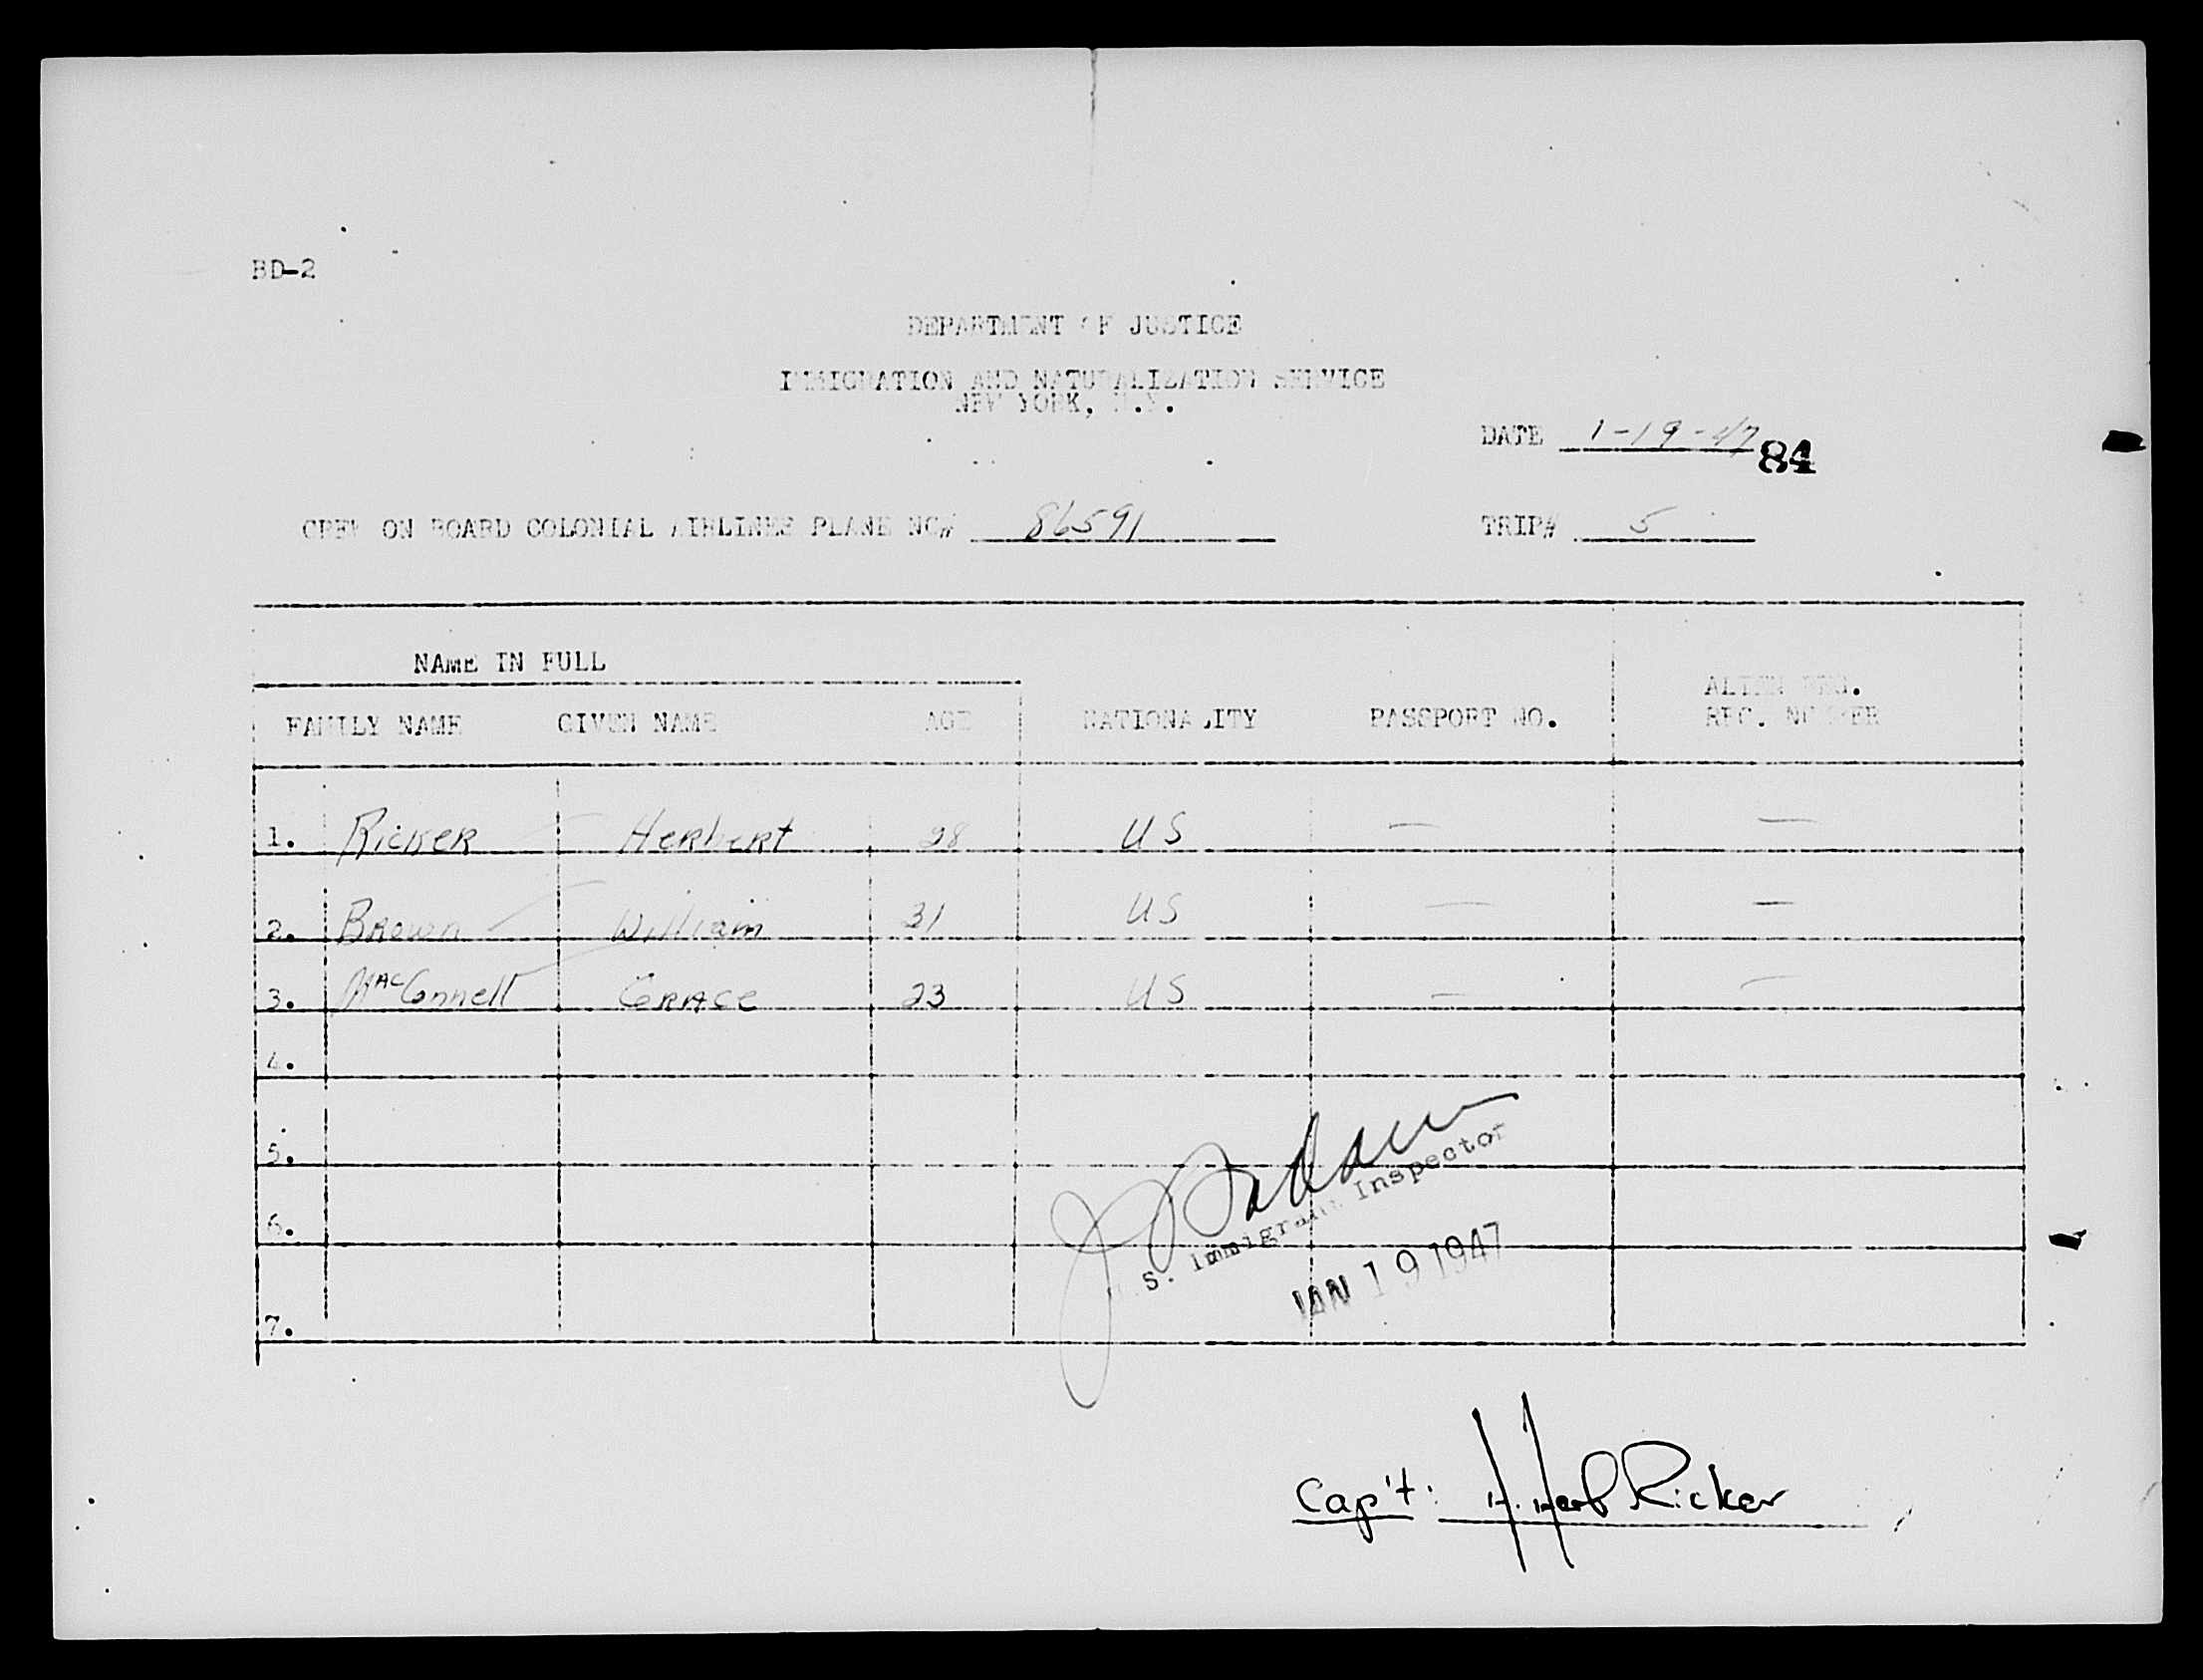 BD-2
DEPARTMENT OF JUSTICE
IMMIGRATION AND NATURALIZATION SERVICE
NEW YORK, N.Y.
DATE 1-19-47
84
CREW ON BOARD COLONIAL AIRLINES PLANE NO# 86591 TRIP# 5
NAME IN FULL
FAMILY NAME GIVEN NAME AGE NATIONALITY PASSPORT NO. ALIEN REG. REC. NUMBER
1. Ricker Herbert 28 US — —
2. Brown William 31 US — —
3. MacConnell Grace 23 US — —
4.
5.
6.
7.
S. Immigrant Inspector
JAN 19 1947
Cap't: H. Herb Ricker